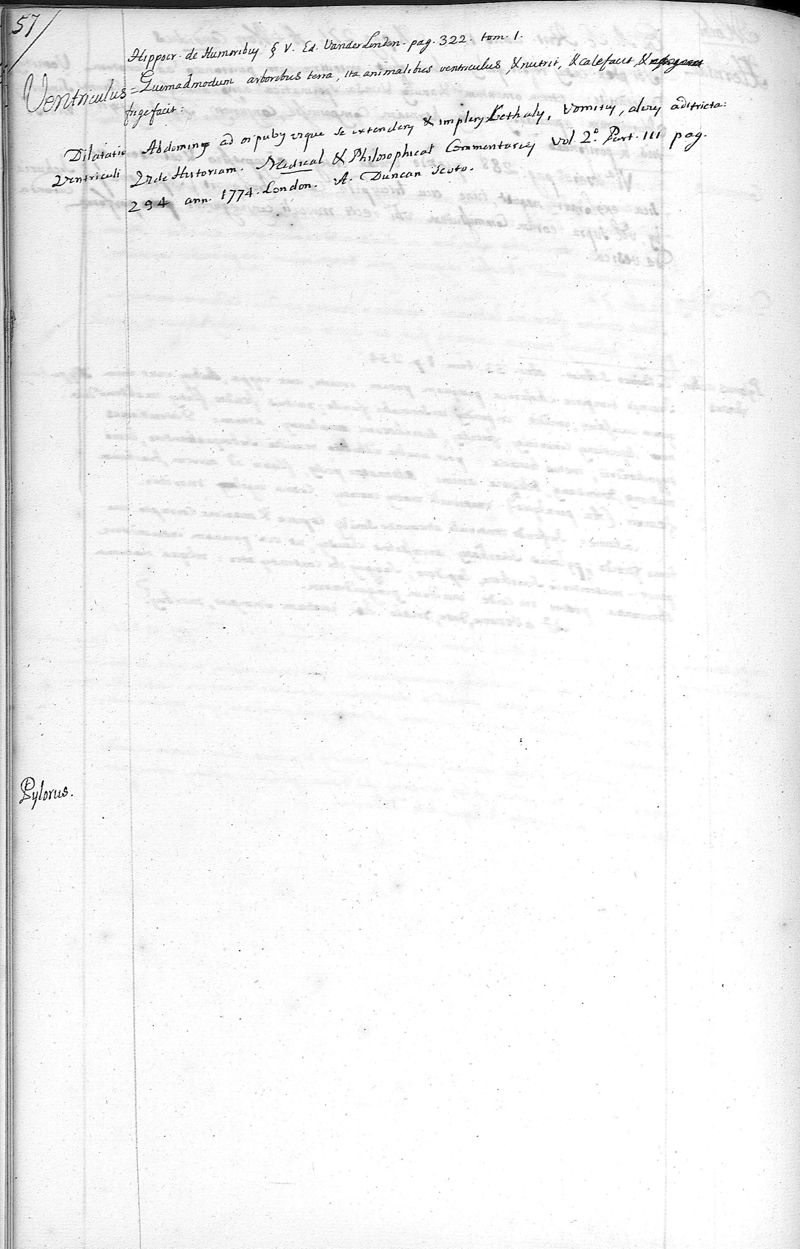 57
Hippocr. de Humoribus § V. Ed. VanderLinden. pag. 322. tom. 1.
Ventriculus = Quemadmodum arboribus terra, ita animalibus ventriculus & nutrit, & calefacit, &
frigefacit:
Dilatatio Abdominis ad os pubis usque se extendens & implens Lethalis, Vomitus, alvus adstricta:
Ventriculi Vide Historiam. Medical & Philosophical Commentaries Vol 2.º Part. III pag.
294 ann. 1774. London. A. Duncan Scoto.
Pylorus.